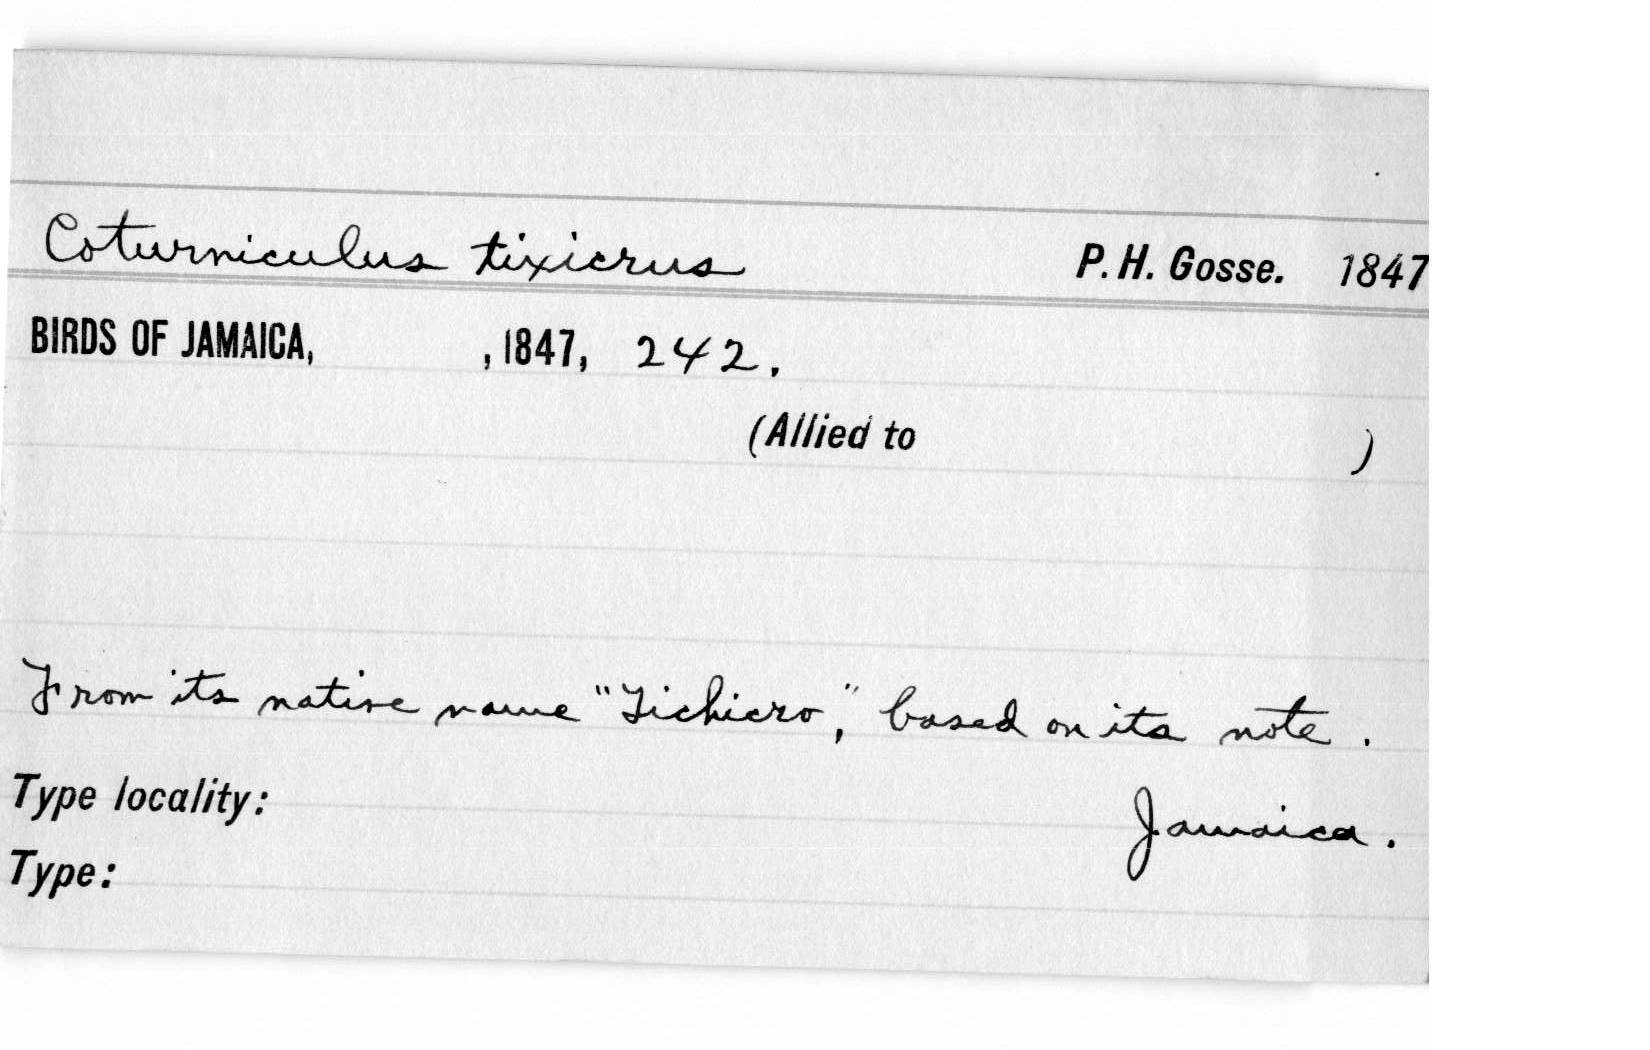 Coturniculus tixicrus P. H. Gosse. 1847
BIRDS OF JAMAICA, , 1847, 242.
(Allied to )
From its native name "Tichicro," based on its note.
Type locality: Jamaica.
Type: